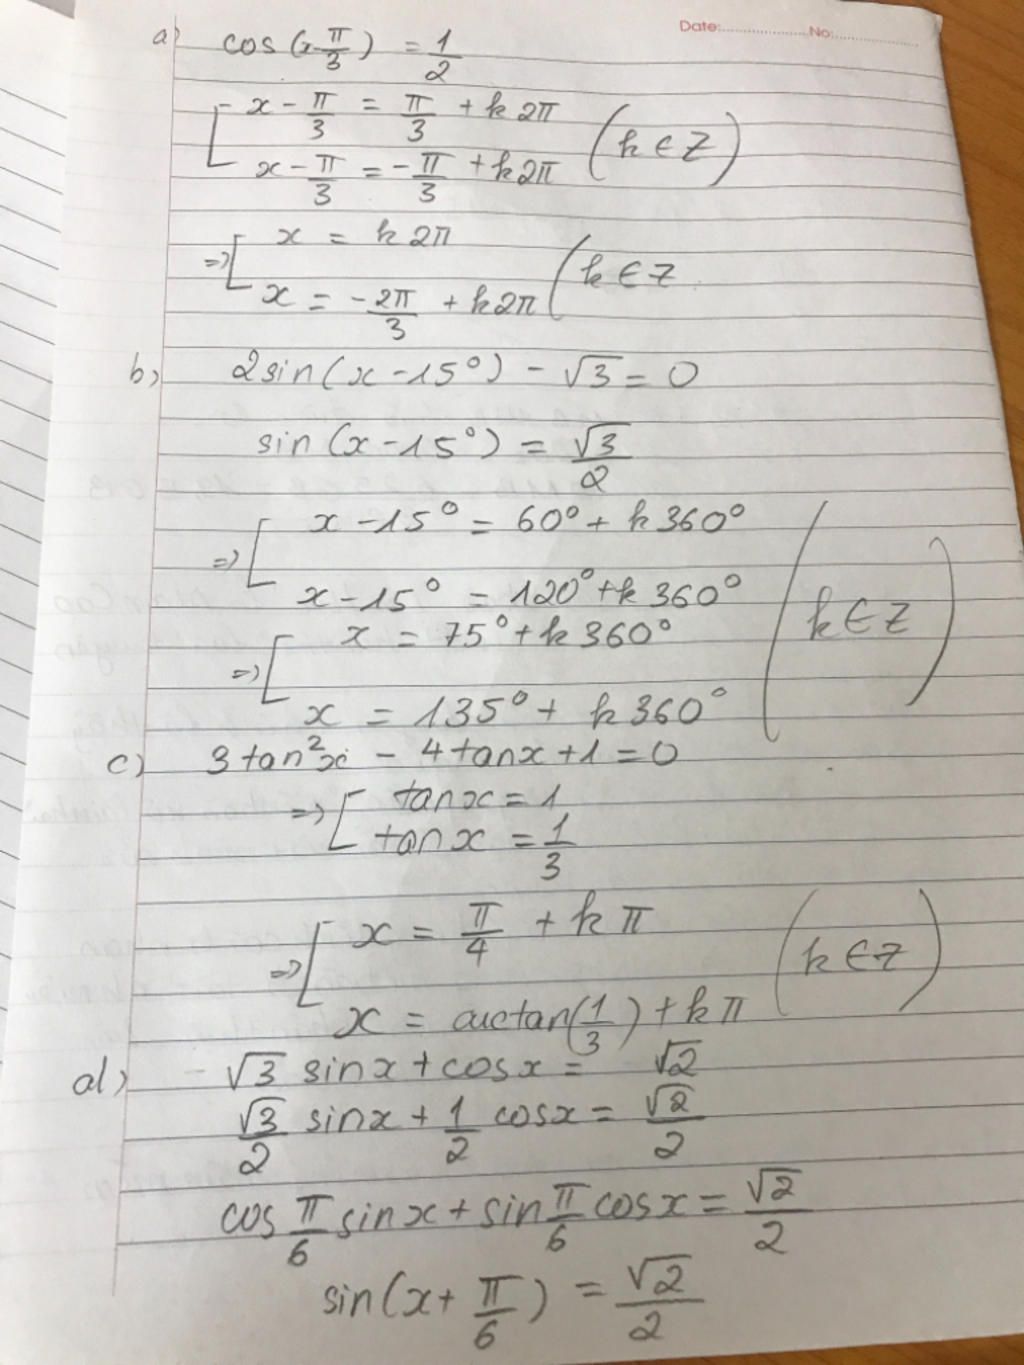 Date:..................No:..................
a) cos(x-π/3) = 1/2
[ x - π/3 = π/3 + k2π
x - π/3 = -π/3 + k2π (k ∈ Z)
=> [ x = k2π
x = -2π/3 + k2π (k ∈ Z
b) 2sin(x-15°) - √3 = 0
sin(x-15°) = √3/2
=> [ x-15° = 60° + k360°
x-15° = 120° + k360°
=> [ x = 75° + k360° (k ∈ Z)
x = 135° + k360°
c) 3tan²x - 4tanx + 1 = 0
=> [ tanx = 1
tanx = 1/3
=> [ x = π/4 + kπ (k ∈ Z)
x = arctan(1/3) + kπ
d) √3 sinx + cosx = √2
√3/2 sinx + 1/2 cosx = √2/2
cos π/6 sinx + sin π/6 cosx = √2/2
sin(x + π/6) = √2/2